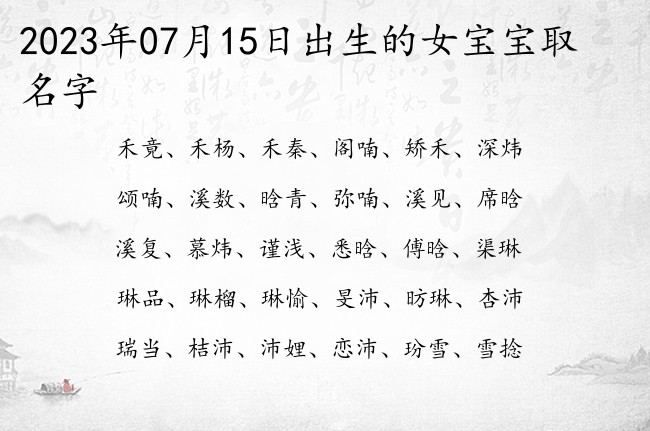 2023年07月15日出生的女宝宝取
名字
禾竟、禾杨、禾秦、阁喃、矫禾、深炜
颂喃、溪数、晗青、弥喃、溪见、席晗
溪复、慕炜、谨浅、悉晗、傅晗、渠琳
琳品、琳榴、琳愉、旻沛、昉琳、杏沛
瑞当、桔沛、沛娌、恋沛、玢雪、雪捻